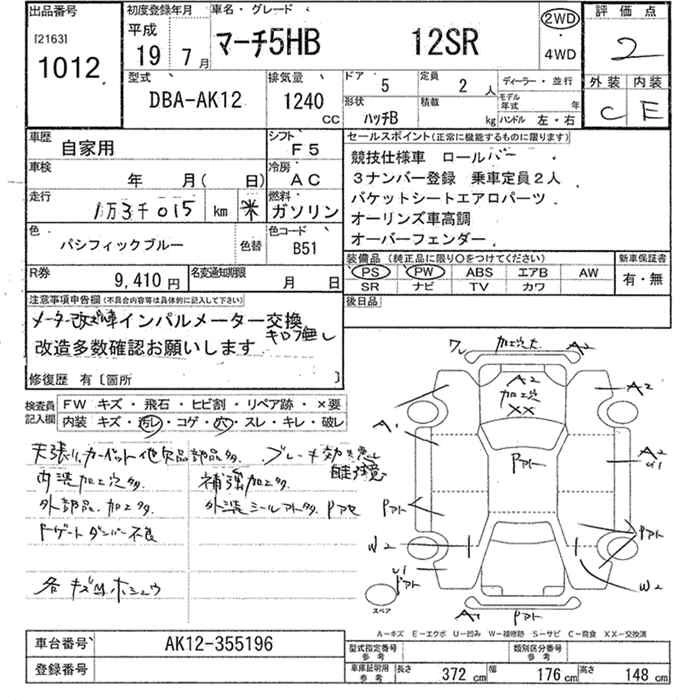 出品番号
[2163]
1012
初度登録年月
平成
19年 7月
車名・グレード
マーチ5HB 12SR
2WD
・
4WD
評価点
2
外装 内装
C E
型式
DBA-AK12
排気量
1240 CC
ドア
5
定員
2 人
形状
ハッチB
積載
kg
ディーラー・並行
モデル年式 年
ハンドル 左・右
車歴
自家用
シフト
F5
車検
年 月( 日)
冷房
AC
走行
1万3千015 km ※
燃料
ガソリン
色
パシフィックブルー
色替
色コード
B51
R券
9,410 円
名変通知期限
月 日
セールスポイント(正常に機能するものに限ります)
競技仕様車 ロールバー ・
3ナンバー登録 乗車定員2人
バケットシートエアロパーツ
オーリンズ車高調
オーバーフェンダー
装備品(純正品に限り○をつけてください)
PS PW ABS エアB AW
SR ナビ TV カワ
新車保証書
有・無
後日品
注意事項申告欄(不具合内容等は具体的に記入して下さい)
メーター改ざん車インパルメーター交換
キロ不無し
改造多数確認お願いします
修復歴 有〔箇所 〕
検査員記入欄
FW キズ・飛石・ヒビ割・リペア跡・×要
内装 キズ・汚レ・コゲ・穴・スレ・キレ・破レ
天張り、カーペット他欠品部品多、ブレーキ効き悪し
内装加工穴多、 補強加工多、
外部品、加工多、 外装シールアト多、Pアセ
Fゲートダンパー不良
各キズ凹ホシュウ
ワレ 加工穴大 A2
A2
加工穴
XX
A2
A1
Pアト
A2
U1
Pアト
Pアト
W2
W2
U1
Pアト
スペア
A1
Pアト
A-キズ E-エクボ U-凹み W-補修跡 S-サビ C-腐食 XX-交換済
車台番号
AK12-355196
登録番号
型式指定番号
参考
類別区分番号
参考
車庫証明用
参考
長さ 372 cm 幅 176 cm 高さ 148 cm